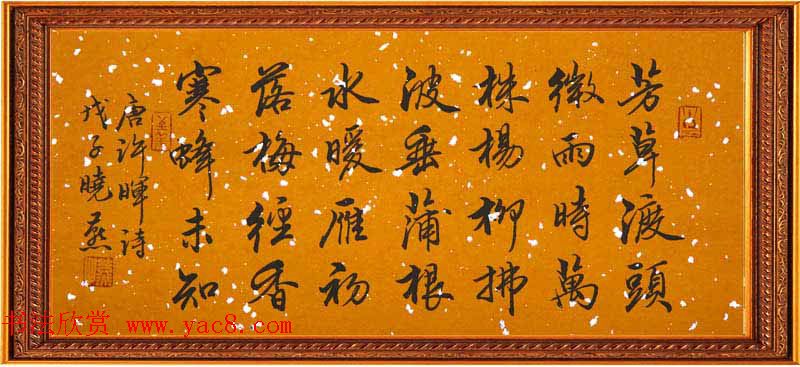 芳草渡頭
微雨時萬
株楊柳拂
波垂蒲根
水暖雁初
落梅徑香
寒蜂未知
唐許暉詩
戊子曉燕
书法欣赏 www.yac8.com